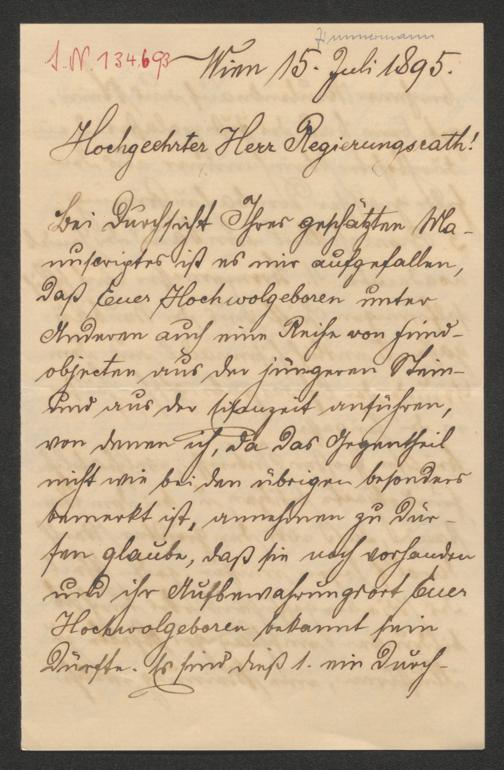 Zimmermann
I. N. 134.693
Wien 15. Juli 1895.
Hochgeehrter Herr Regierungsrath!
Bei Durchsicht Ihres geschätzten Ma-
nuscriptes ist es mir aufgefallen,
daß Euer Hochwolgeboren unter
Anderen auch eine Reihe von Fund-
objecten aus der jüngeren Stein-
und aus der Eisenzeit anführen,
von denen ich, da das Gegentheil
nicht wie bei den übrigen besonders
bemerkt ist, annehmen zu dür-
fen glaube, daß sie noch vorhanden
und ihr Aufbewahrungsort Euer
Hochwolgeboren bekannt sein
dürfte. Es sind dieß 1. ein Durch-